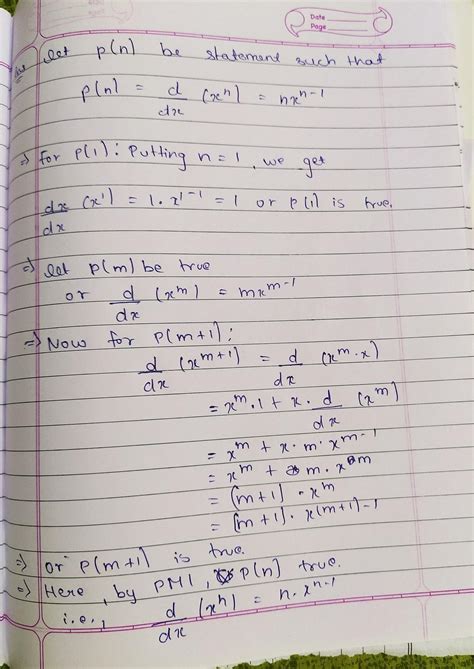 Date
Page
let p(n) be statement such that
p(n) = d/dx (xⁿ) = nxⁿ⁻¹
⇒ for P(1): Putting n=1, we get
dx/dx (x¹) = 1·x¹⁻¹ = 1 or p(1) is true.
⇒ let p(m) be true
or d/dx (xᵐ) = mxᵐ⁻¹
⇒ Now for P(m+1):
d/dx (xᵐ⁺¹) = d/dx (xᵐ·x)
= xᵐ·1 + x·d/dx (xᵐ)
= xᵐ + x·m·xᵐ⁻¹
= xᵐ + m·xᵐ
= (m+1)·xᵐ
= (m+1)·x(m+1)-1
⇒ or P(m+1) is true.
⇒ Here, by PMI, P(n) true.
i.e., d/dx (xⁿ) = n·xⁿ⁻¹